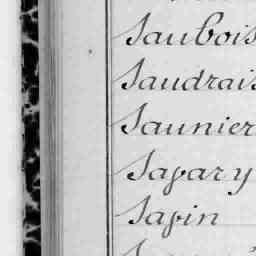 Saubois
Saudrais
Saunier
Savary
Savin